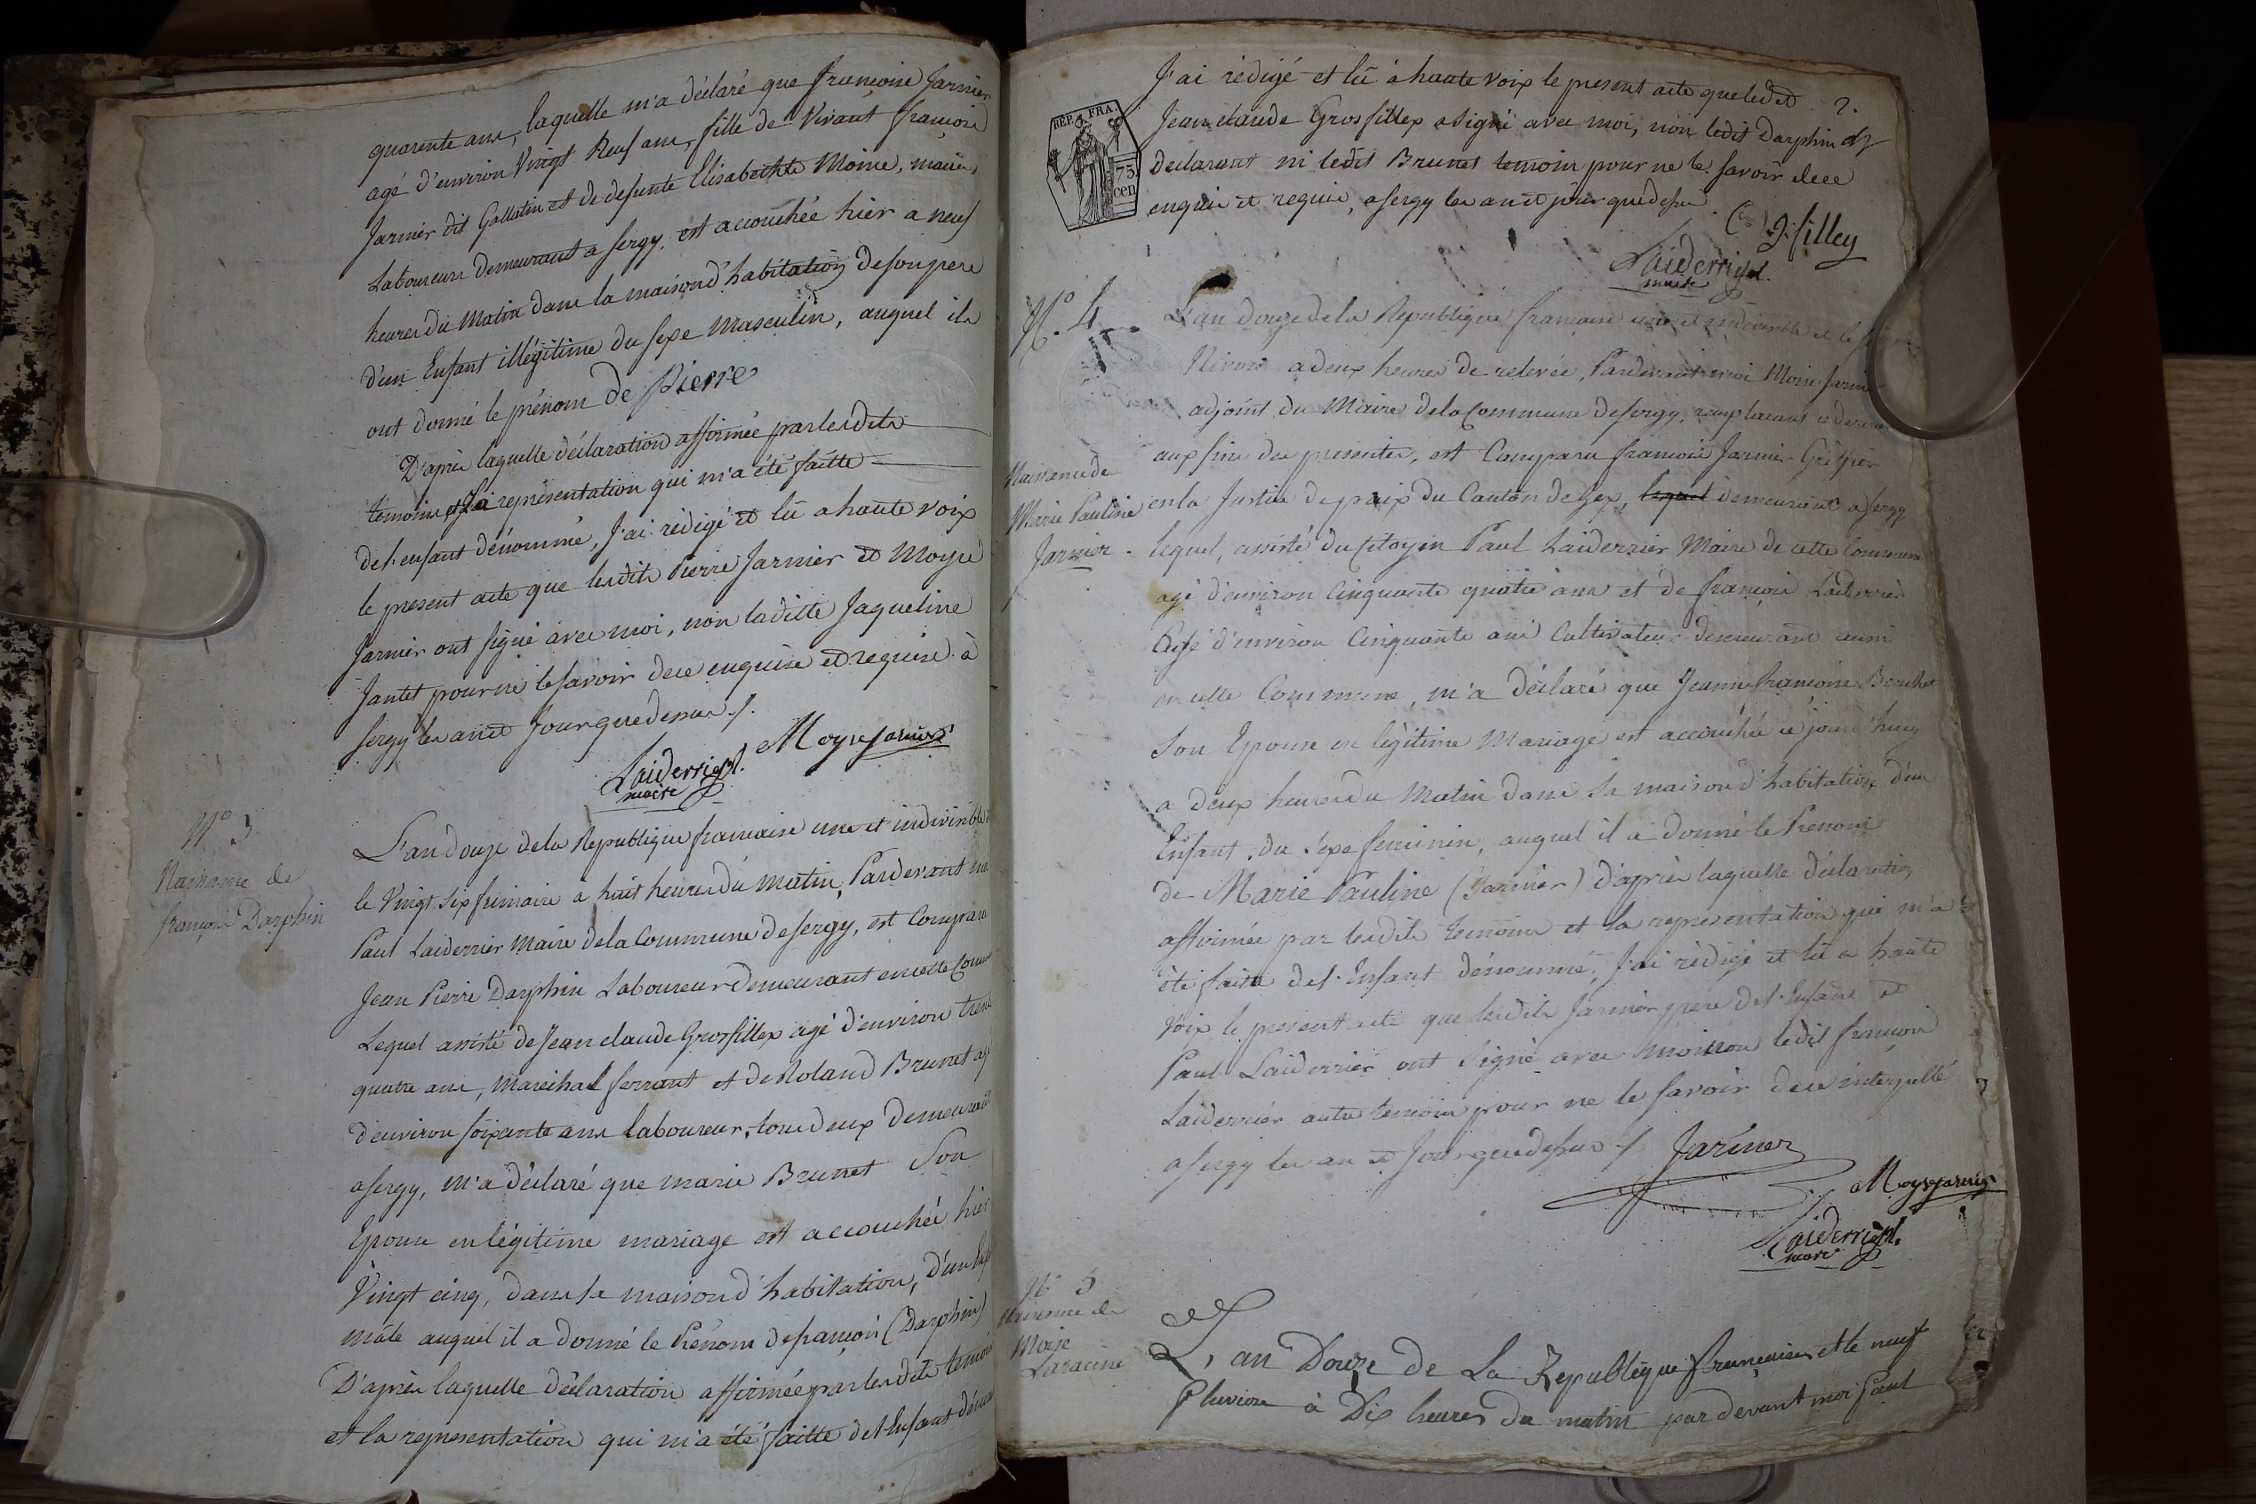 quarente ans, laquelle m'a déclaré que françoise Jarnier
agé d'environ Vingt Neuf ans, fille de Vivant françois
Jarnier dit Gallatin et de defunte Elisabethte Moine, mariés
Laboureurs demeurant a sergy, est accouchée hier a neuf
heures du Matin dans la maison d'habitation de son pere
d'un Enfant illégitime du sexe Masculin, auquel ils
ont donné le prénom de Pierre
D'après laquelle déclaration affirmée par les dits
temoins et la représentation qui m'a été faitte
de l'enfant dénommé, J'ai rédigé et lû a haute voix
le present acte que lesdits Pierre Jarnier et Moyse
Jarnier ont signé avec moi, non laditte Jaqueline
Jantet pour ne le savoir de ce enquise et requise à
sergy les an et Jour que dessus ./.
Laiderrier Moyse Jarnier
maire
N° 3
Naissance de
françois Darphin
L'an douze de la Republique francaise une et indivisible
le Vingt six frimaire a huit heures du matin, Pardevant moi
Paul Laiderrier Maire de la Commune de sergy, est Comparu
Jean Pierre Darphin Laboureur demeurant en cette Comm
Lequel assisté de Jean claude Grosfillex agé d'environ trente
quatre ans, Maréchal ferrant et de Roland Brunet agé
d'environ soixante ans laboureur, tous deux demeurant
a sergy, m'a déclaré que marie Brunet son
Epouse en légitime mariage est accouchée hier
Vingt cinq, dans sa maison d'habitation, d'un Enf
mâle auquel il a donné le Prénom de françois (Darphin)
D'après laquelle déclaration affirmée par les dits temoins
et la representation qui m'a été faitte de l'Enfant dénom
J'ai rédigé et lû à haute voix le present acte que ledit
Jean claude Grosfillex a signé avec moi, non ledit Darphin
declarant ni ledit Brunet temoin pour ne le savoir de ce
enquis et requis, a sergy les an et jour que dessus
REP. FRA.
75
cen
J. fillex
Laiderrier
maire
N° 4
Naissance de
Marie Pauline
Jarnier
L'an douze de la Republique francaise une et indivisible et le
Nivose a deux heures de relevée, Pardevant moi Moise Jarnier
adjoint du Maire de la Commune de sergy, remplacant ce dernier
aux fins des presentes, est Comparu francois Jarnier Greffier
en la Justice de paix du Canton de Gex, lequel demeurant a sergy
lequel, assisté du citoyen Paul Laiderrier Maire de cette Commune
agé d'environ Cinquante quatre ans et de françois Laiderrier
agé d'environ Cinquante ans Cultivateur demeurant aussi
en cette Commune, m'a déclaré que Jeanne francoise Bouchet
son Epouse en légitime Mariage est accouchée ce jourd'huy
a deux heures du Matin dans sa maison d'habitation d'un
Enfant du sexe feminin, auquel il a donné le Prenom
de Marie Pauline (Jarnier) d'après laquelle déclaration
affirmée par lesdits temoins et la representation qui m'a
été faite de l'Enfant dénommé, J'ai rédigé et lû a haute
voix le present acte que lesdits Jarnier pere de l'Enfant et
Paul Laiderrier ont signé avec moi non ledit francois
Laiderrier autre temoin pour ne le savoir de ce interpellé
a sergy les an et Jour que dessus ./. Jarinier
Moyse Jarnier
Laiderrier
maire
N° 5
Naissance de
Moise
Laracine
L'an Douze de La République françaises et le neuf
Pluviose à Dix heures du matin par devant moi Paul